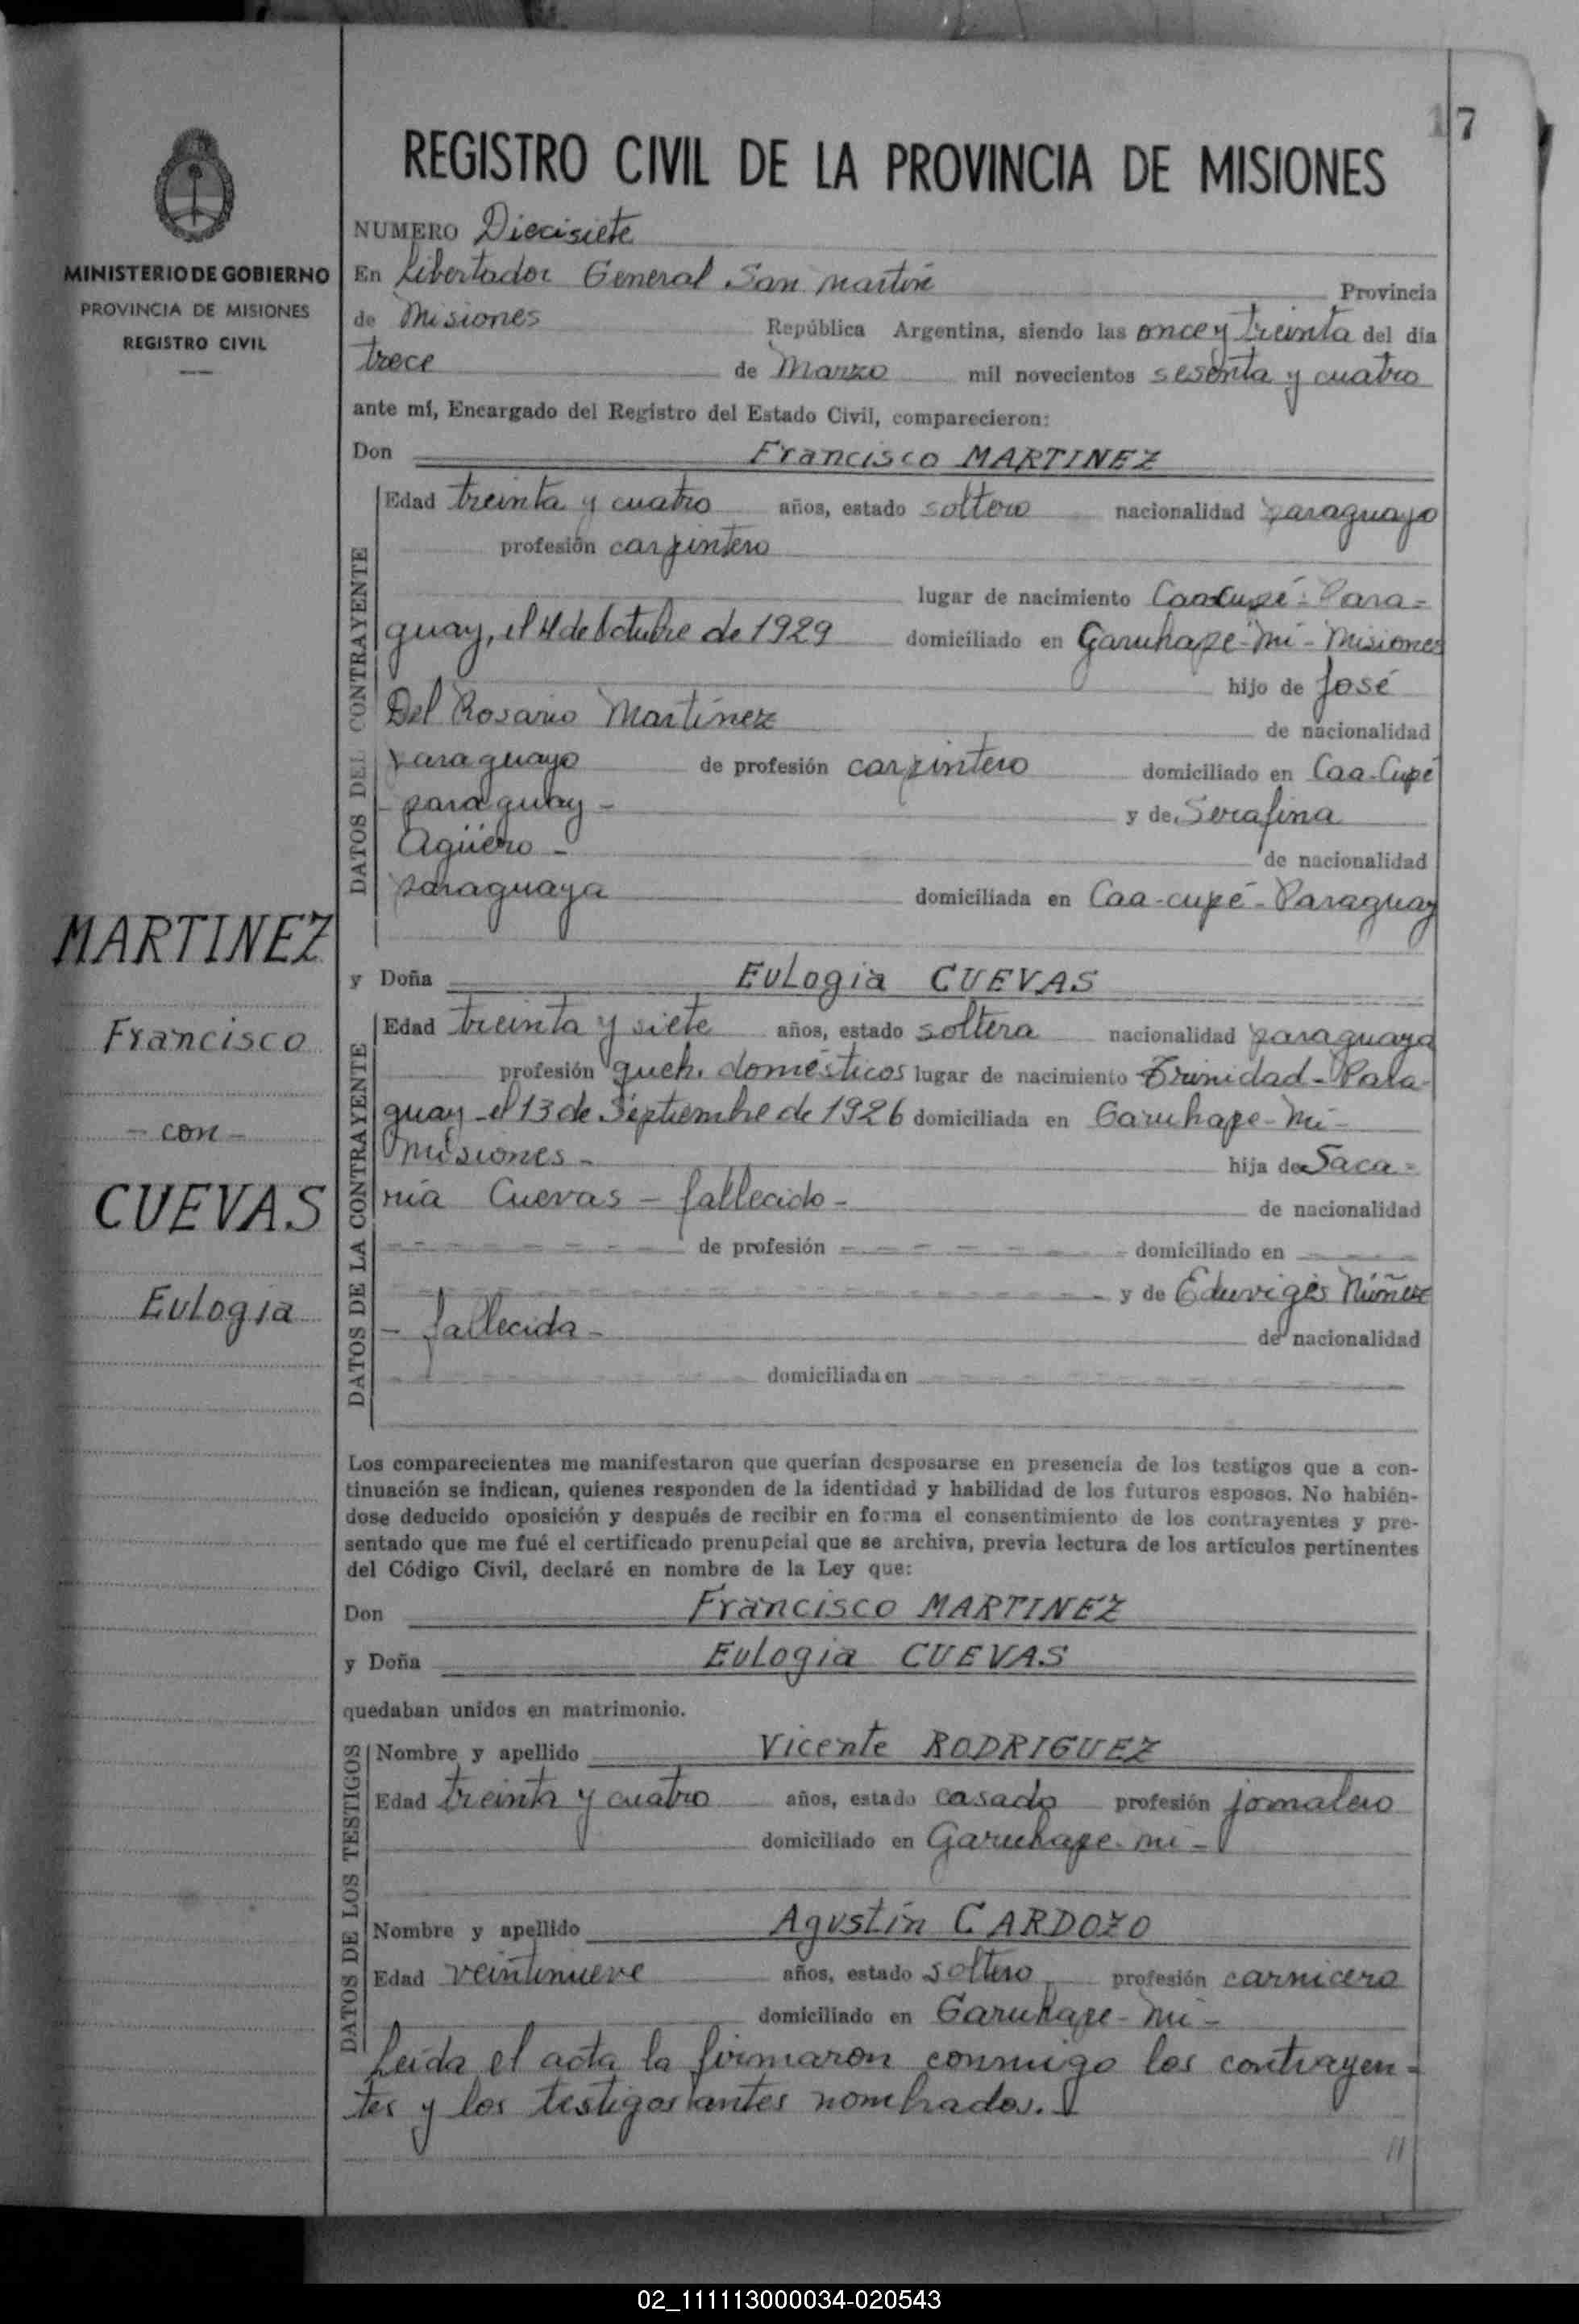 17
REGISTRO CIVIL DE LA PROVINCIA DE MISIONES
MINISTERIO DE GOBIERNO
PROVINCIA DE MISIONES
REGISTRO CIVIL
NUMERO Diecisiete
En Libertador General San Martín Provincia
de Misiones República Argentina, siendo las once y treinta del día
trece de Marzo mil novecientos sesenta y cuatro
ante mí, Encargado del Registro del Estado Civil, comparecieron:
Don Francisco MARTINEZ
DATOS DEL CONTRAYENTE
Edad treinta y cuatro años, estado soltero nacionalidad paraguayo
profesión carpintero
lugar de nacimiento Caacupé - Para-
guay, el 4 de Octubre de 1929 domiciliado en Garuhape-mi - Misiones
hijo de José
Del Rosario Martínez de nacionalidad
paraguayo de profesión carpintero domiciliado en Caa-Cupé
- paraguay - y de Serafina
Agüero - de nacionalidad
paraguaya domiciliada en Caa-cupé - Paraguay
MARTINEZ
Francisco
- con -
CUEVAS
Eulogia
y Doña Eulogia CUEVAS
DATOS DE LA CONTRAYENTE
Edad treinta y siete años, estado soltera nacionalidad paraguaya
profesión queh. domésticos lugar de nacimiento Trinidad - Para-
guay - el 13 de Septiembre de 1926 domiciliada en Garuhape-mi -
Misiones - hija de Saca-
ría Cuevas - fallecido - de nacionalidad
de profesión domiciliado en
y de Eduviges Núñez
- fallecida - de nacionalidad
domiciliada en
Los comparecientes me manifestaron que querían desposarse en presencia de los testigos que a con-
tinuación se indican, quienes responden de la identidad y habilidad de los futuros esposos. No habién-
dose deducido oposición y después de recibir en forma el consentimiento de los contrayentes y pre-
sentado que me fué el certificado prenupcial que se archiva, previa lectura de los artículos pertinentes
del Código Civil, declaré en nombre de la Ley que:
Don Francisco MARTINEZ
y Doña Eulogia CUEVAS
quedaban unidos en matrimonio.
DATOS DE LOS TESTIGOS
Nombre y apellido Vicente RODRIGUEZ
Edad treinta y cuatro años, estado casado profesión jornalero
domiciliado en Garuhape-mi -
Nombre y apellido Agustín CARDOZO
Edad veintinueve años, estado soltero profesión carnicero
domiciliado en Garuhape-mi -
Leída el acta la firmaron conmigo los contrayen-
tes y los testigos antes nombrados.
//
02_111113000034-020543